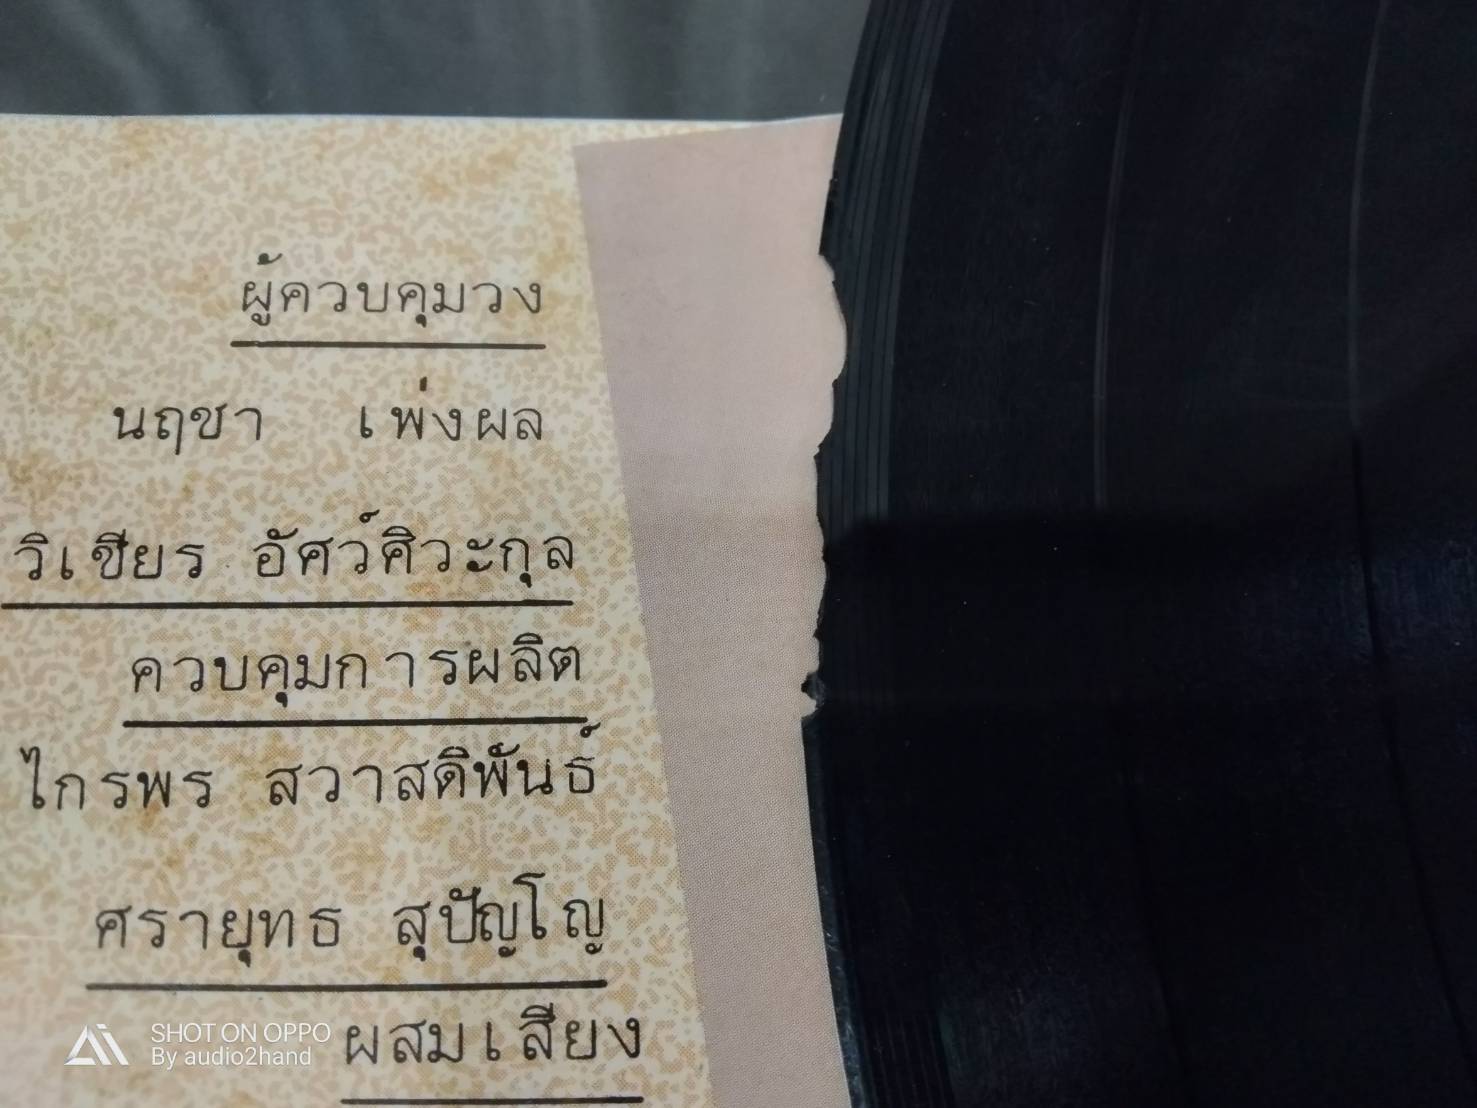 ผู้ควบคุมวง
นฤชา เพ่งผล
วิเชียร อัศว์ศิวะกุล
ควบคุมการผลิต
ไกรพร สวาสดิพันธ์
ศรายุทธ สุปัญโญ
ผสมเสียง
SHOT ON OPPO
By audio2hand